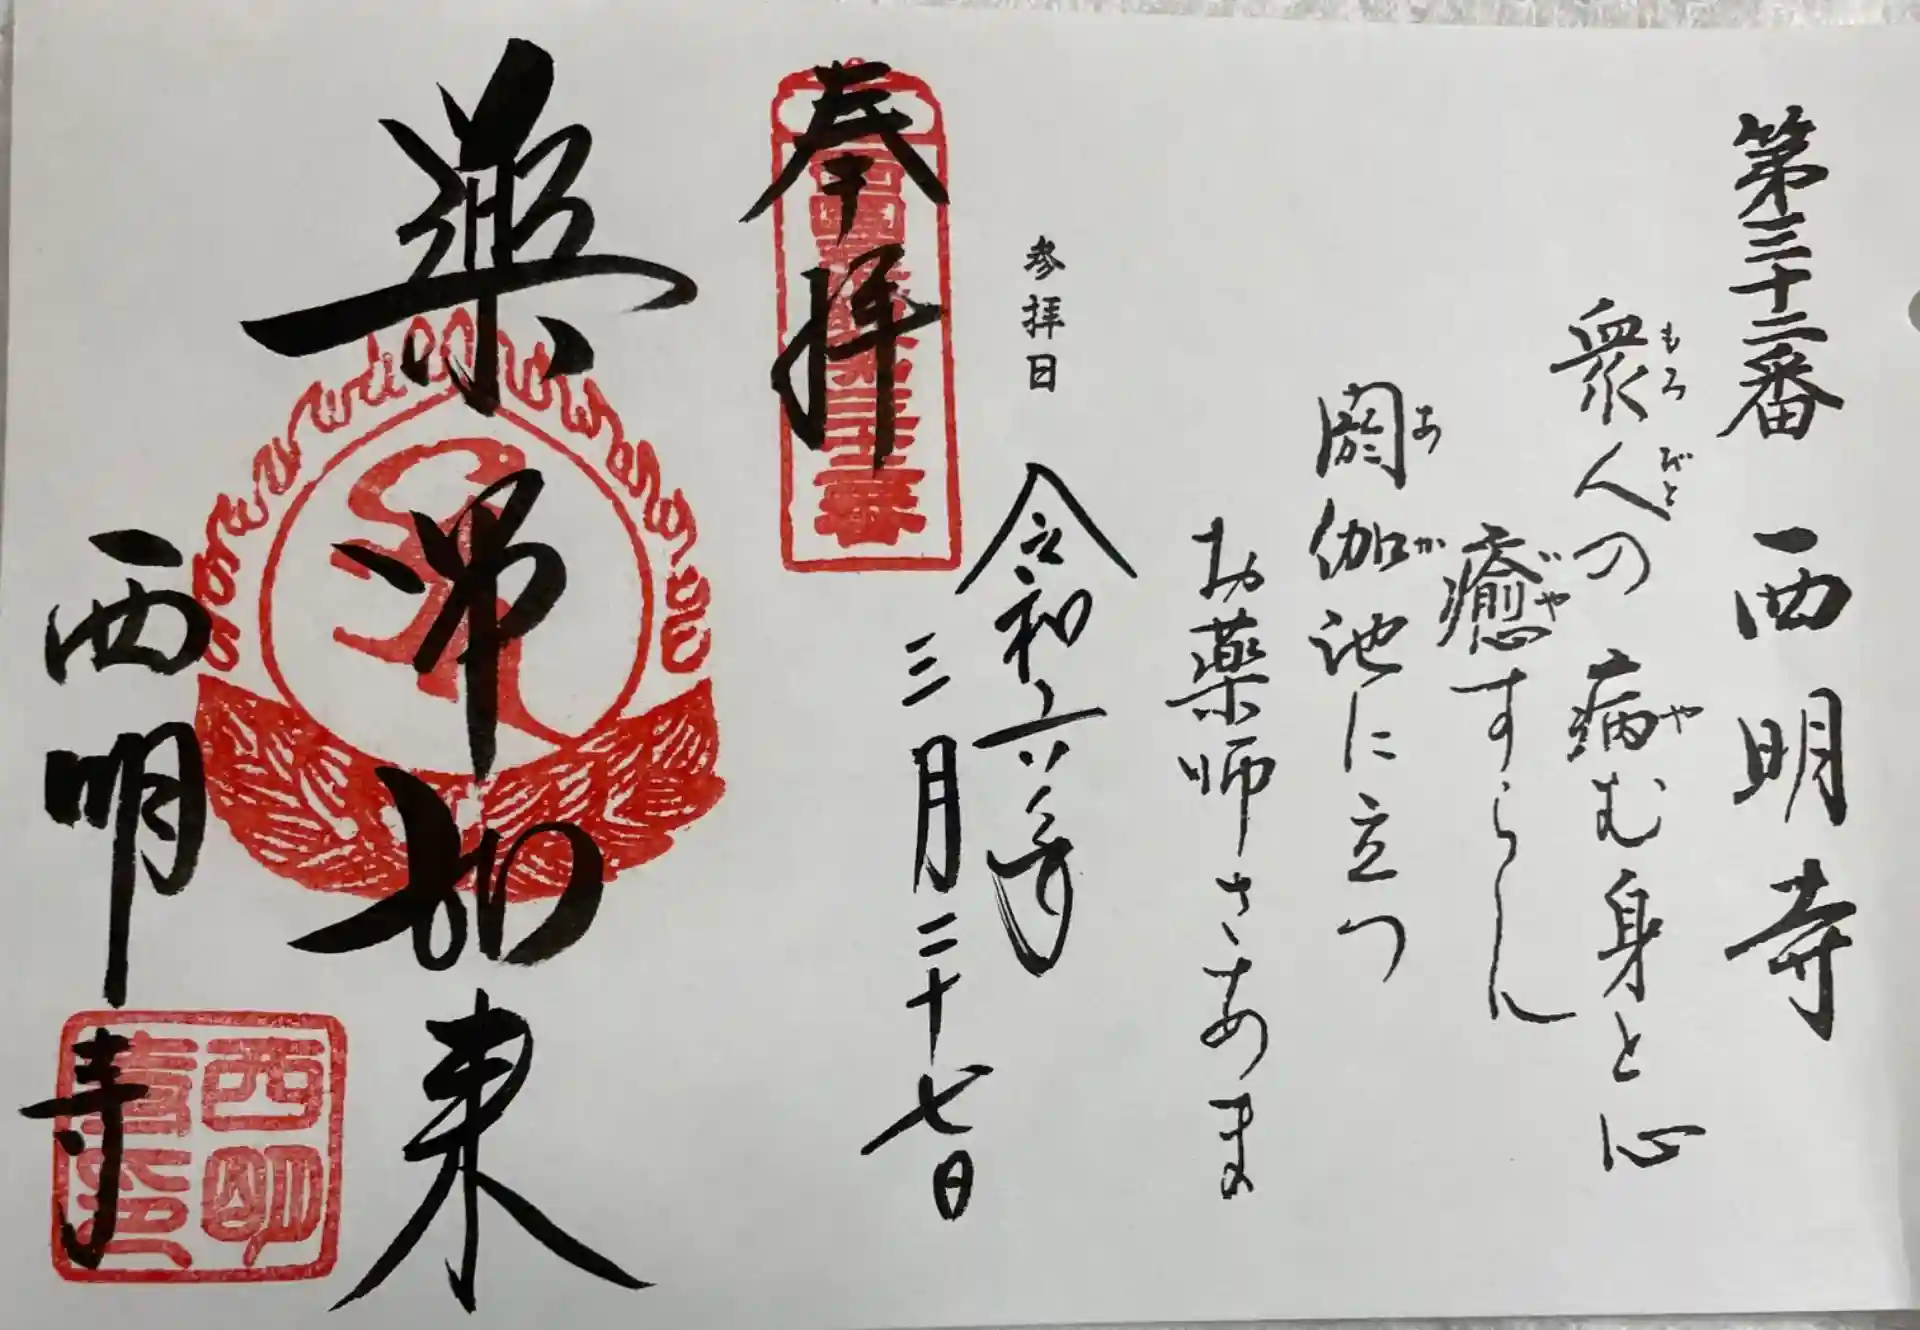 第三十二番 西明寺
衆人の病む身と心
もろびと や
癒すらん
いや
閼伽池に立つ
あか
お薬師さあま
参拝日
令和六年
三月二十七日
奉拝
薬师如来
西明寺
西明
寺印